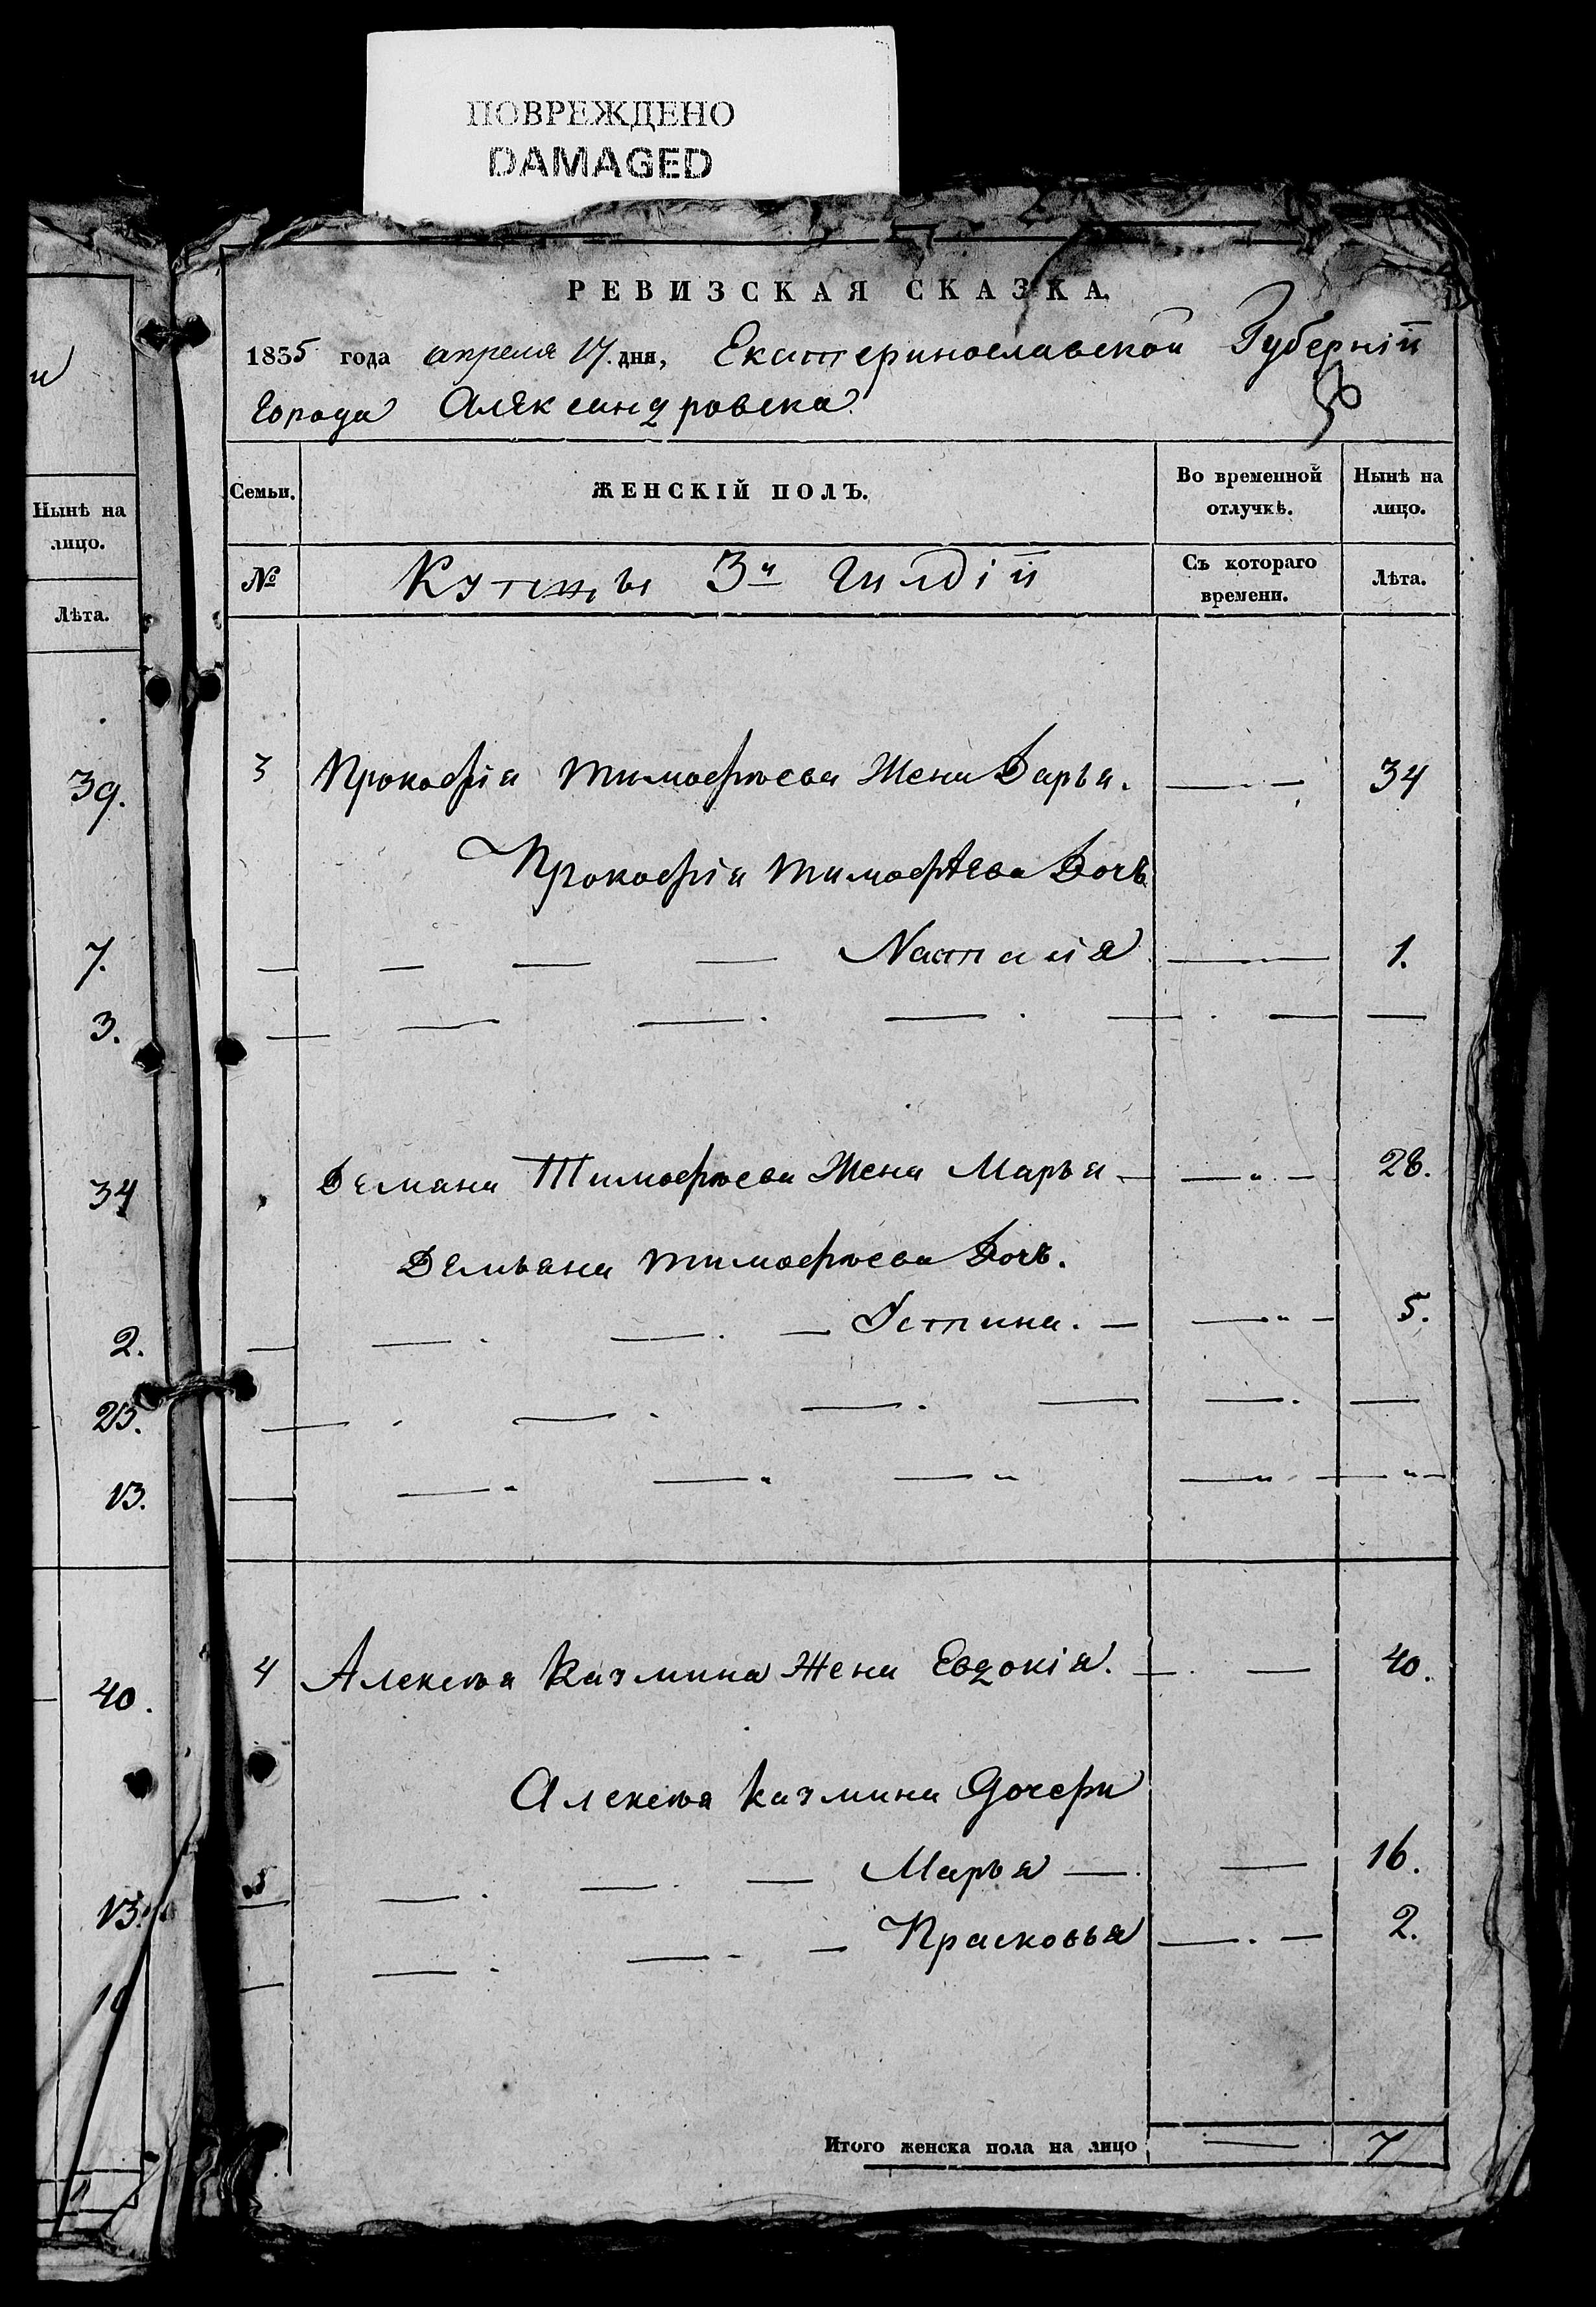 ПОВРЕЖДЕНО
DAMAGED
РЕВИЗСКАЯ СКАЗКА.
1835 года апреля 17. дня, Екатеринославской Губерніи
города Александровска
Семьи.
ЖЕНСКІЙ ПОЛЪ.
Во временной отлучкѣ.
Нынѣ на лицо.
№
Купцы 3й гилдіи
Съ котораго времени.
Лѣта.
3 Прокофія Тимофѣева Жена Дарья. — 34
Прокофія Тимофѣева Дочь
— — — — Наталія — 1.
— — — — — — —
Демяна Тимофѣева Жена Марья — — 28.
Демьяна Тимофѣева Дочь.
— — — — Устина. — — 5.
— — — — — — —
— — — — — —
4 Алексѣя Казмина Жена Евдокія. — — 40.
Алексѣя Казмина Дочери
— — — — Марья — — 16.
— — — — Прасковья — — 2.
Итого женска пола на лицо — 7
Нынѣ на лицо.
Лѣта.
39.
7.
3.
34
2.
13.
40.
13.